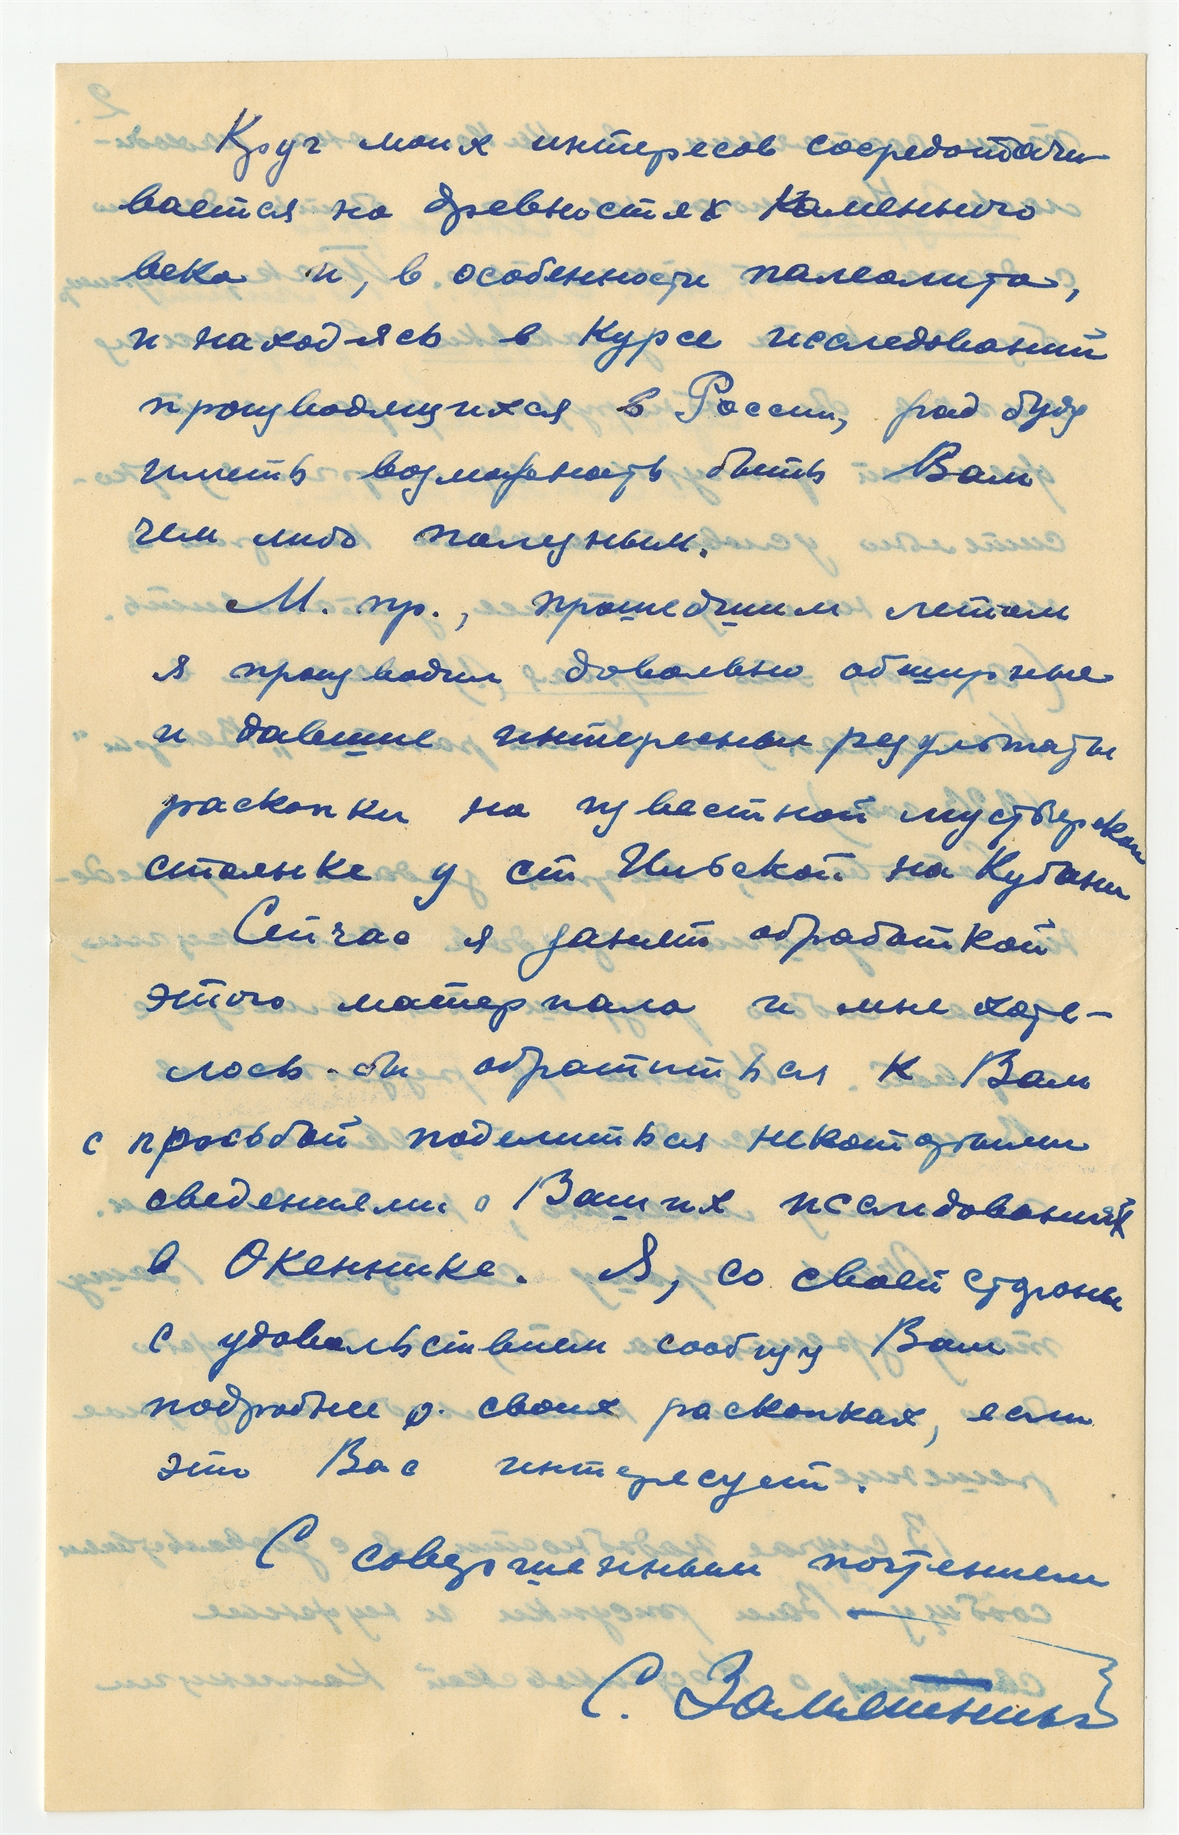 Круг моих интересов сосредоточи-
вается на древностях Каменного
века и, в особенности палеолита,
и находясь в курсе исследований
производящихся в России, рад буду
иметь возможность быть Вам
чем либо полезным.
М. пр., прошедшим летом
я производил довольно обширные
и давшие интересные результаты
раскопки на известной мустьерской
стоянке у ст Ильской на Кубани
Сейчас я занят обработкой
этого материала и мне хоте-
лось-бы обратиться к Вам
с просьбой поделиться некоторыми
сведениями о Ваших исследованиях
в Океннике. Я, со своей стороны
с удовольствием сообщу Вам
подробнее о своих раскопках, если
это Вас интересует.
С совершенным почтением
С. Замятнин